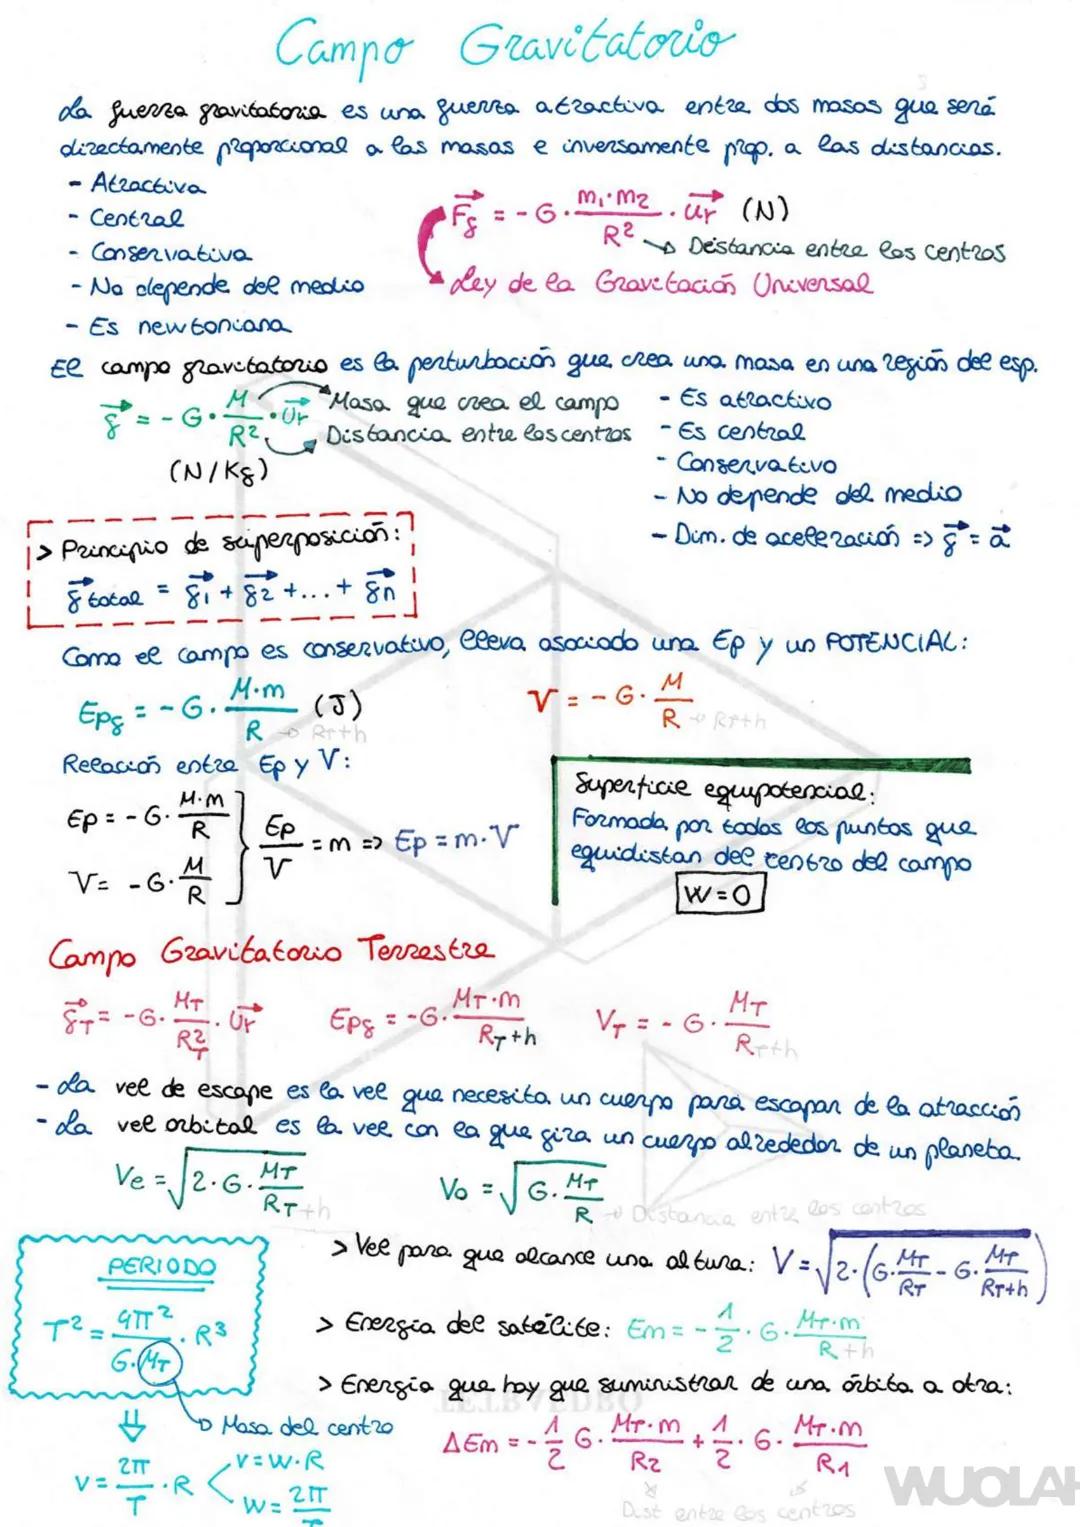 Campo Gravitatorio
La fuerza gravitatoria es una fuerza atractiva entre dos masas que será
directamente proporcional a las masas e inversamente prop. a las distancias.
- Atractiva
- Central
- Conservativa
- No depende del medio
- Es newtoniana
Fg = - G · m1·m2 / R² · ur (N)
Distancia entre los centros
Ley de la Gravitación Universal
El campo gravitatorio es la perturbación que crea una masa en una región del esp.
g = - G · M / R² · ur
(N/Kg)
Masa que crea el campo
Distancia entre los centros
- Es atractivo
- Es central
- Conservativo
- No depende del medio
- Dim. de aceleración => g = a
> Principio de superposición:
g total = g1 + g2 + ... + gn
Como el campo es conservativo, lleva asociado una Ep y un POTENCIAL:
Epg = - G · M·m / R (J)
RT+h
V = - G · M / R
RT+h
Relación entre Ep y V:
Ep = - G · M·m / R
V = - G · M / R
Ep / V = m => Ep = m·V
Superficie equipotencial:
Formada por todos los puntos que
equidistan del centro del campo
W = 0
Campo Gravitatorio Terrestre
gT = - G · MT / RT² · Ur
Epg = - G · MT·m / RT+h
VT = - G · MT / RT+h
- La vel de escape es la vel que necesita un cuerpo para escapar de la atracción
- La vel orbital es la vel con la que gira un cuerpo alrededor de un planeta.
Ve = √2·G·MT / RT+h
Vo = √G·MT / R
Distancia entre los centros
PERIODO
T² = 4π² / G·MT · R³
Masa del centro
V = 2π / T · R
V = W·R
W = 2π / T
> Vel para que alcance una altura: V = √2·(G·MT / RT - G·MT / RT+h)
> Energía del satélite: Em = - 1/2 · G · MT·m / R+h
> Energía que hay que suministrar de una órbita a otra:
ΔEm = - 1/2 G · MT·m / R2 + 1/2 · G · MT·m / R1
Dist entre los centros
WUOLAH